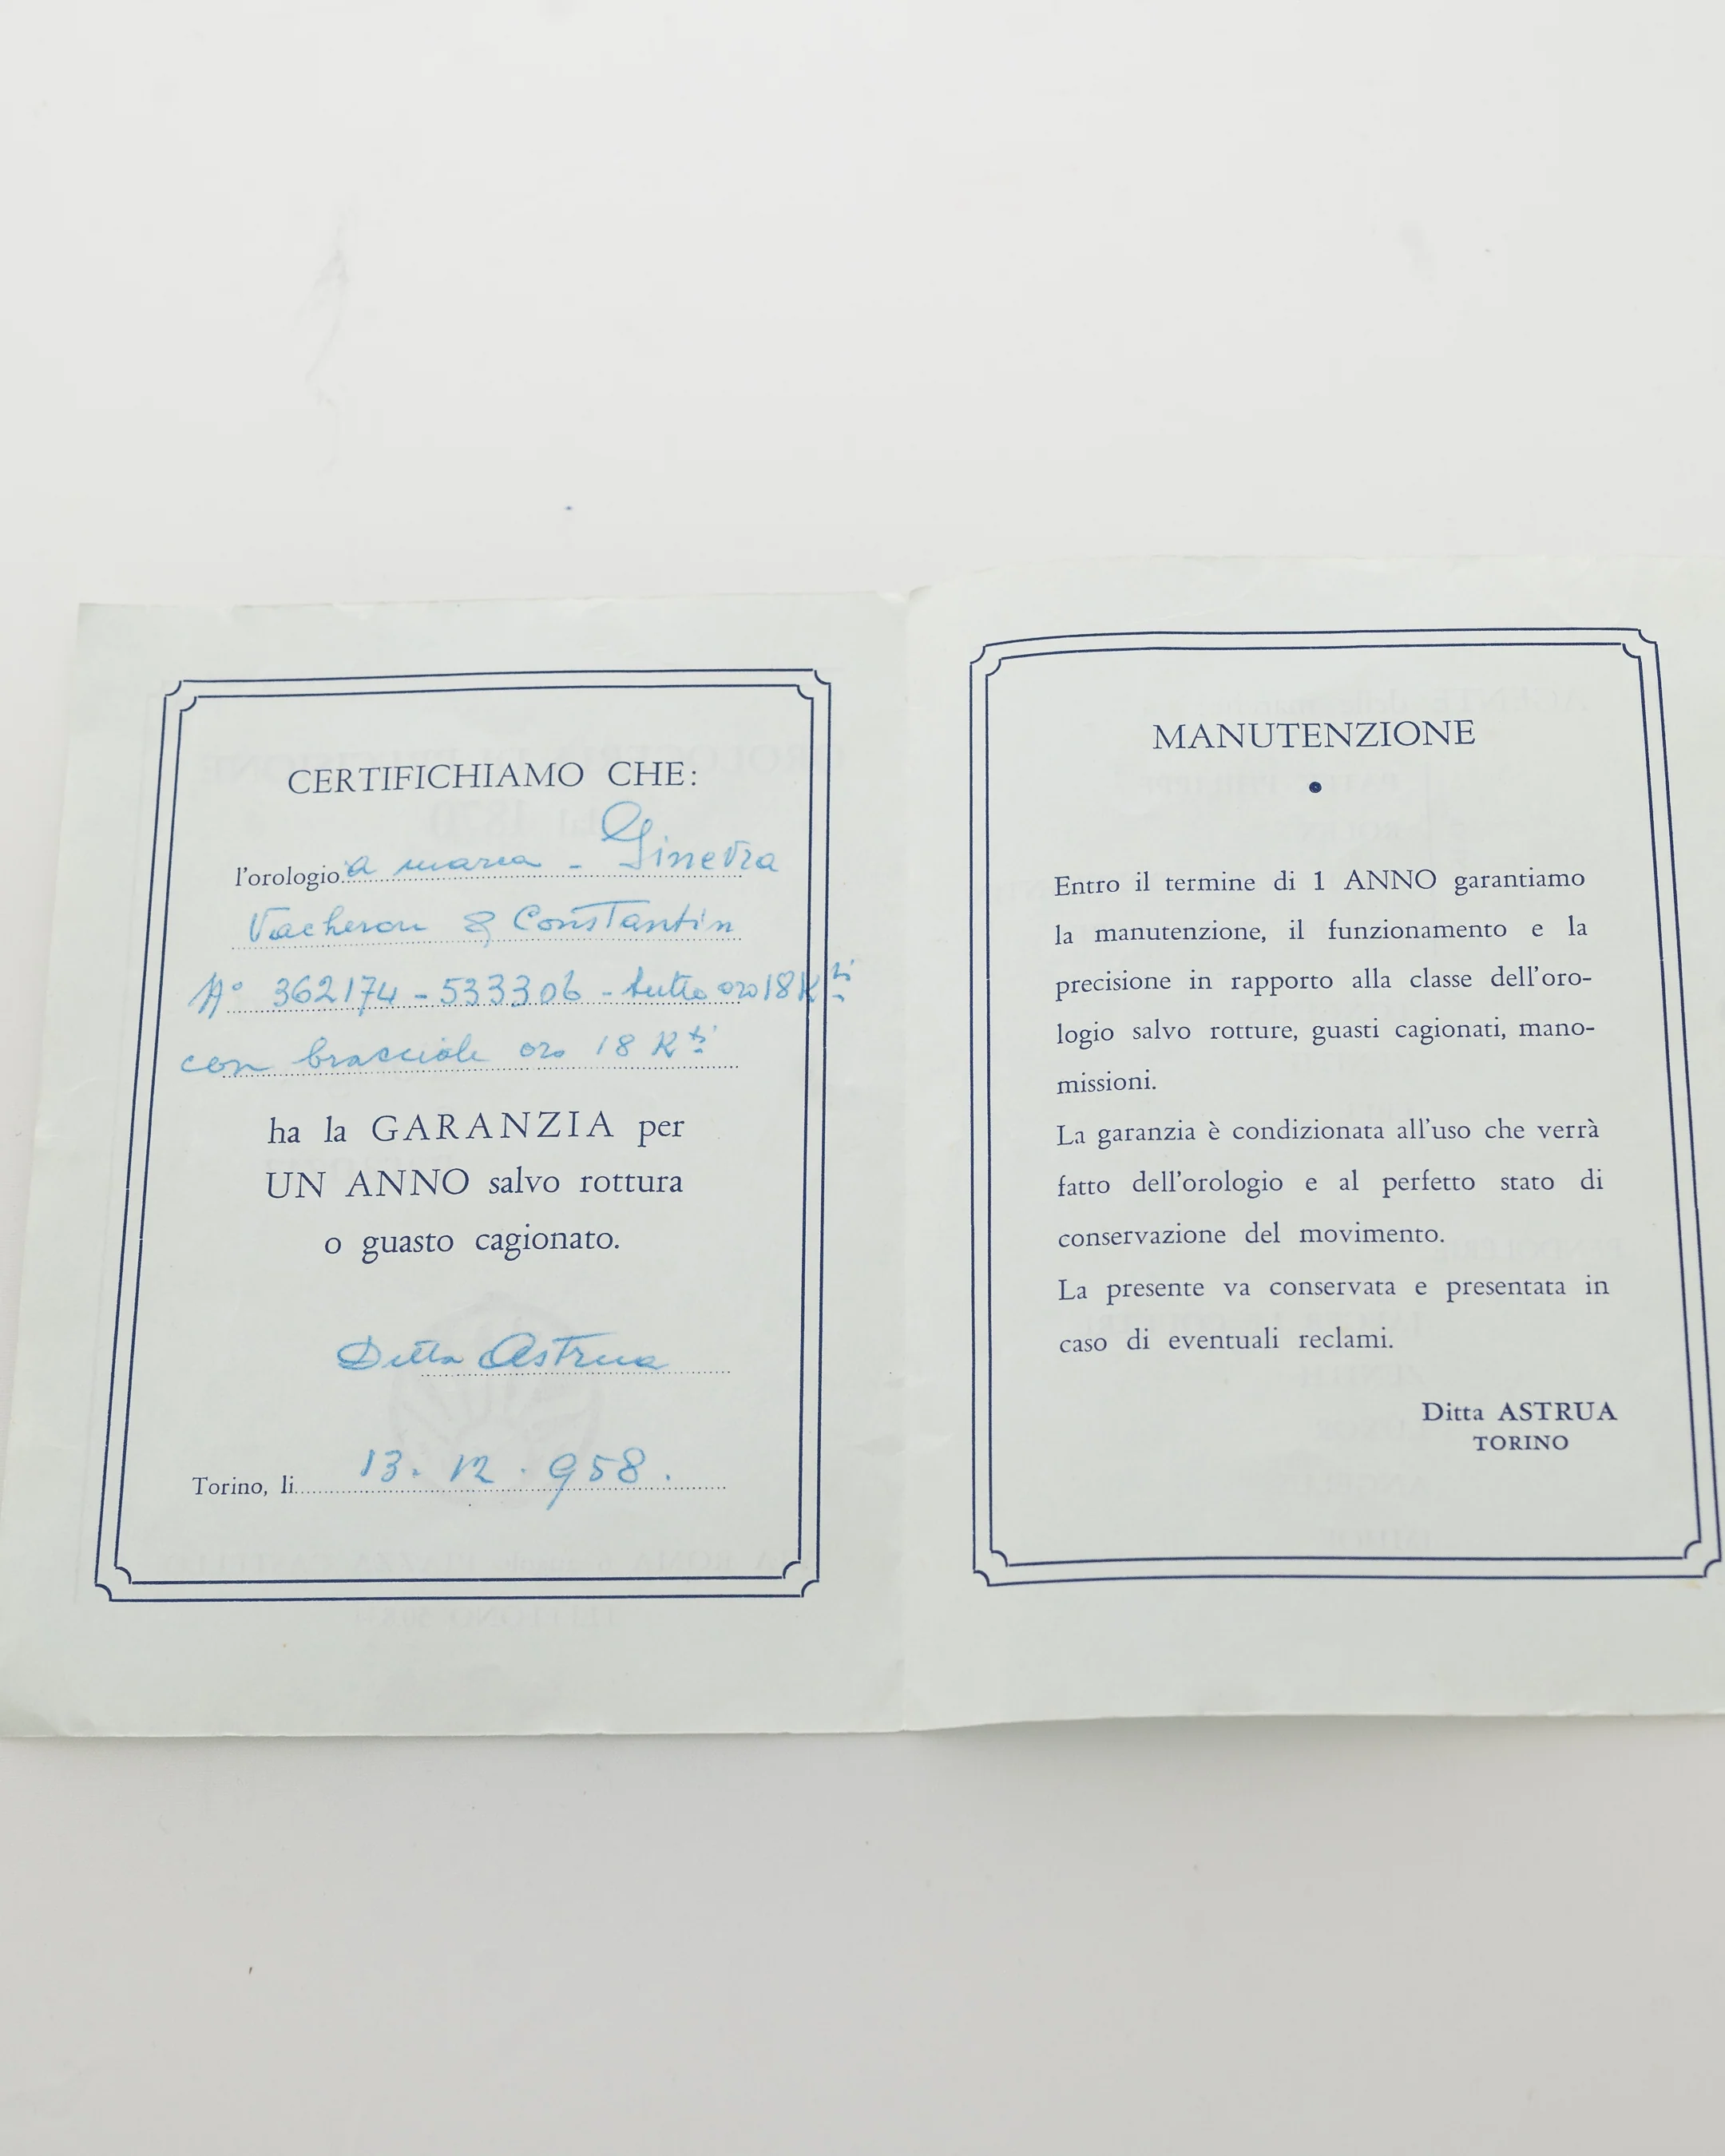 CERTIFICHIAMO CHE:
l'orologio a marca - Ginevra
Vacheron & Constantin
N° 362174 - 533306 - tutto oro 18 Kti
con bracciale oro 18 Kti
ha la GARANZIA per
UN ANNO salvo rottura
o guasto cagionato.
Ditta Astrua
Torino, li 13. 12. 958.
MANUTENZIONE
Entro il termine di 1 ANNO garantiamo
la manutenzione, il funzionamento e la
precisione in rapporto alla classe dell'oro-
logio salvo rotture, guasti cagionati, mano-
missioni.
La garanzia è condizionata all'uso che verrà
fatto dell'orologio e al perfetto stato di
conservazione del movimento.
La presente va conservata e presentata in
caso di eventuali reclami.
Ditta ASTRUA
TORINO